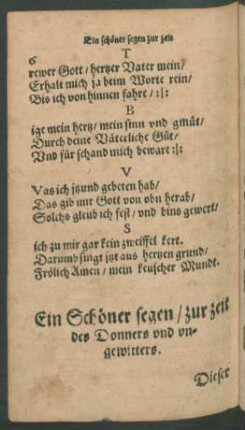 Ein schöner segen zur zeit
6
T
rewer Gott / hertzer Vater mein /
Erhalt mich ja beim Worte rein /
Bis ich von hinnen fahre / :|:
B
ige mein hertz / mein sinn vnd gmüt /
Durch deine Väterliche Güt /
Vnd für schand mich bewart :|:
V
Vas ich jtzund gebeten hab /
Das gib mir Gott von obn herab /
Solchs gleub ich fest / vnd bins gewert /
S
ich zu mir gar kein zweiffel kert.
Darumb singt jtzt aus hertzen grund /
Frölich Amen / mein keuscher Mundt.
Ein Schöner segen / zur zeit
des Donners vnd vn-
gewitters.
Dieser